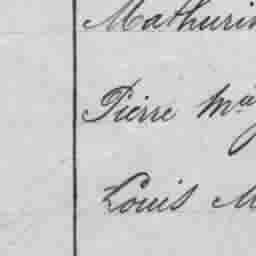 Mathurin
Pierre Ma
Louis M